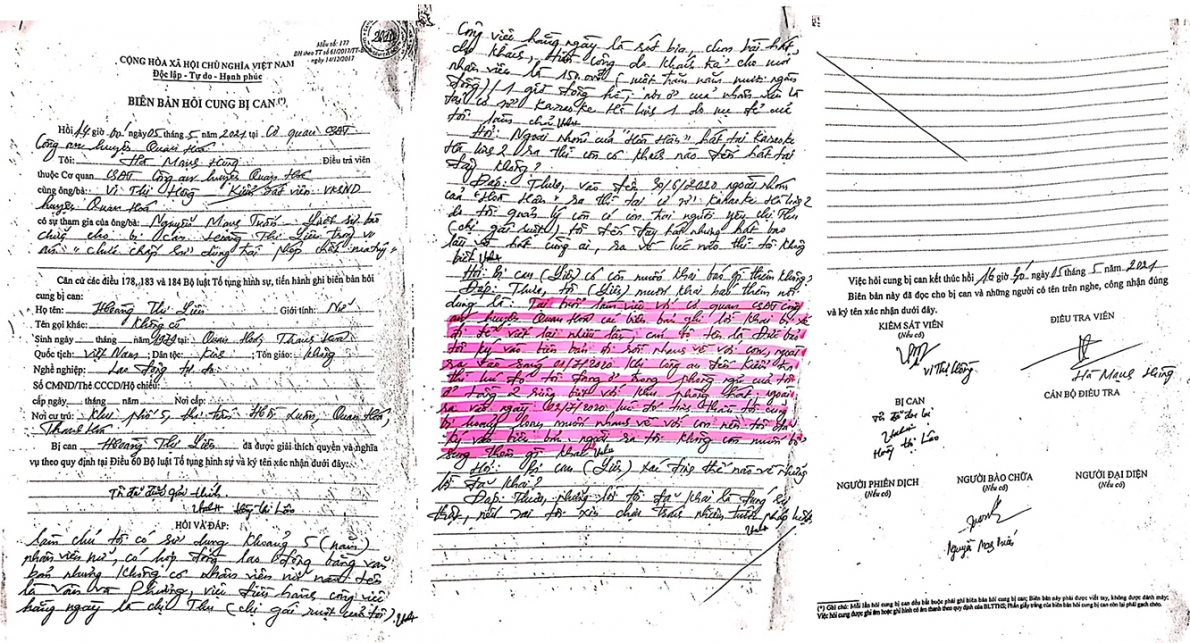 Mẫu số: 177
BH theo TT số 61/2017/TT-B
ngày 14/12/2017
CỘNG HÒA XÃ HỘI CHỦ NGHĨA VIỆT NAM
Độc lập - Tự do - Hạnh phúc
BIÊN BẢN HỎI CUNG BỊ CAN (*)
Hồi 14 giờ 00 ngày 05 tháng 5 năm 2021 tại Cơ quan CSĐT
Công an huyện Quan Hoá
Tôi: Hà Mạnh Hùng Điều tra viên
thuộc Cơ quan CSĐT Công an huyện Quan Hoá
cùng ông/bà: Vi Thị Hồng Kiểm sát viên VKSND
huyện Quan Hoá
có sự tham gia của ông/bà: Nguyễn Mạnh Tuấn Luật sư bào
chữa cho bị can Hoàng Thị Liên trong vụ
án: "chứa chấp sử dụng trái phép chất ma tuý"
Căn cứ các điều 178, 183 và 184 Bộ luật Tố tụng hình sự, tiến hành ghi biên bản hỏi
cung bị can:
Họ tên: Hoàng Thị Liên Giới tính: Nữ
Tên gọi khác: Không có
Sinh ngày tháng năm tại Quan Hoá, Thanh Hoá
Quốc tịch: Việt Nam; Dân tộc: Kinh; Tôn giáo: không
Nghề nghiệp: Lao động tự do
Số CMND/Thẻ CCCD/Hộ chiếu:
cấp ngày tháng năm Nơi cấp:
Nơi cư trú: Khu phố 5, thị trấn Hồi Xuân, Quan Hoá,
Thanh Hoá
Bị can Hoàng Thị Liên đã được giải thích quyền và nghĩa
vụ theo quy định tại Điều 60 Bộ luật Tố tụng hình sự và ký tên xác nhận dưới đây:
Tôi đã được giải thích
HỎI VÀ ĐÁP:
làm chủ tôi có sử dụng khoảng 5 (năm)
nhân viên nữ, có hợp đồng lao động bằng văn
bản nhưng không có nhân viên nữ nào tên
là Vân và Phương, việc điều hành công việc
hằng ngày là chị Thu (chị gái ruột của tôi)
Công việc hằng ngày là rót bia, chọn bài hát,
cho khách, tiền công do khách trả cho mỗi
nhân viên là 150.000đ (một trăm năm mươi ngàn
đồng)/1 giờ đồng hồ, nơi ở của nhân viên là
tại cơ sở Karaoke Hà Liên 1 do mẹ đẻ của
tôi làm chủ
Hỏi: Ngoài nhóm của "Hòa Hân" hát tại Karaoke
Hà Liên 2 ra thì còn có khách nào đến hát tại
đây không?
Đáp: Thưa, vào đêm 30/6/2020 ngoài nhóm
của "Hòa Hân" ra thì tại cơ sở Karaoke Hà Liên 2
do tôi quản lý còn có con trai người yêu chị Thu
(chị gái ruột) tôi đến đây hát nhưng hát bao
lâu và hát cùng ai, ra về lúc nào thì tôi không
biết
Hỏi: bị can (Liên) có còn muốn khai báo gì thêm không?
Đáp: Thưa, tôi (Liên) muốn khai báo thêm nội
dung là: Tại buổi làm việc với cơ quan CSĐT Công
an huyện Quan Hoá các biên bản ghi lời khai bị
viết lại nhiều lần, cán bộ tên là Đức bảo
tôi ký vào biên bản đi rồi nhanh về với con, ngoài
ra vào sáng 01/7/2020 khi công an đến kiểm tra
thì lúc đó tôi đang ở trong phòng ngủ của tôi
ở tầng 2 riêng biệt với khu phòng hát, ngoài
ra vào ngày 02/7/2020 lúc đó tinh thần tôi cũng
bị hoảng loạn muốn nhanh về với con nên tôi đã
ký vào biên bản, ngoài ra tôi không còn muốn bổ
sung thêm gì khác
Hỏi: bị can (Liên) xác định thế nào về những
lời đã khai?
Đáp: Thưa, những lời tôi đã khai là đúng sự
thật, nếu sai tôi xin chịu trách nhiệm trước pháp luật
Việc hỏi cung bị can kết thúc hồi 16 giờ 30 ngày 05 tháng 5 năm 2021
Biên bản này đã đọc cho bị can và những người có tên trên nghe, công nhận đúng
và ký tên xác nhận dưới đây.
KIỂM SÁT VIÊN
(Nếu có)
Vi Thị Hồng
ĐIỀU TRA VIÊN
Hà Mạnh Hùng
BỊ CAN
Tôi đã đọc lại
Hoàng Thị Liên
CÁN BỘ ĐIỀU TRA
NGƯỜI PHIÊN DỊCH
(Nếu có)
NGƯỜI BÀO CHỮA
(Nếu có)
Nguyễn Mạnh Tuấn
NGƯỜI ĐẠI DIỆN
(Nếu có)
(*) Ghi chú: Mỗi lần hỏi cung bị can đều bắt buộc phải ghi biên bản hỏi cung bị can; Biên bản này phải được viết tay, không được đánh máy;
Việc hỏi cung được ghi âm hoặc ghi hình có âm thanh theo quy định của BLTTHS; Phần giấy trắng của biên bản hỏi cung bị can còn lại phải gạch chéo.